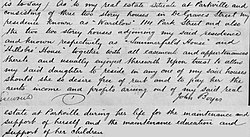 is to say: As to my real estate situate at Parkville and
consisting of those two story houses in De Grant Street
residence known as "                " 111 The Street and also
the two two story houses adjoining my said residence
and known respectively as "Summerfield House" and
"Hillston House" together with all easements and appurtenances
thereto and usually enjoyed therewith Upon trust to allow
my said daughter to reside in any one of my said houses
should she so desire free of rent and to pay her the
rents income and profits arising out of my said real
John Boyes
estate at Parkville during her life for the maintenance and
support of herself and the maintenance education and
support of her children